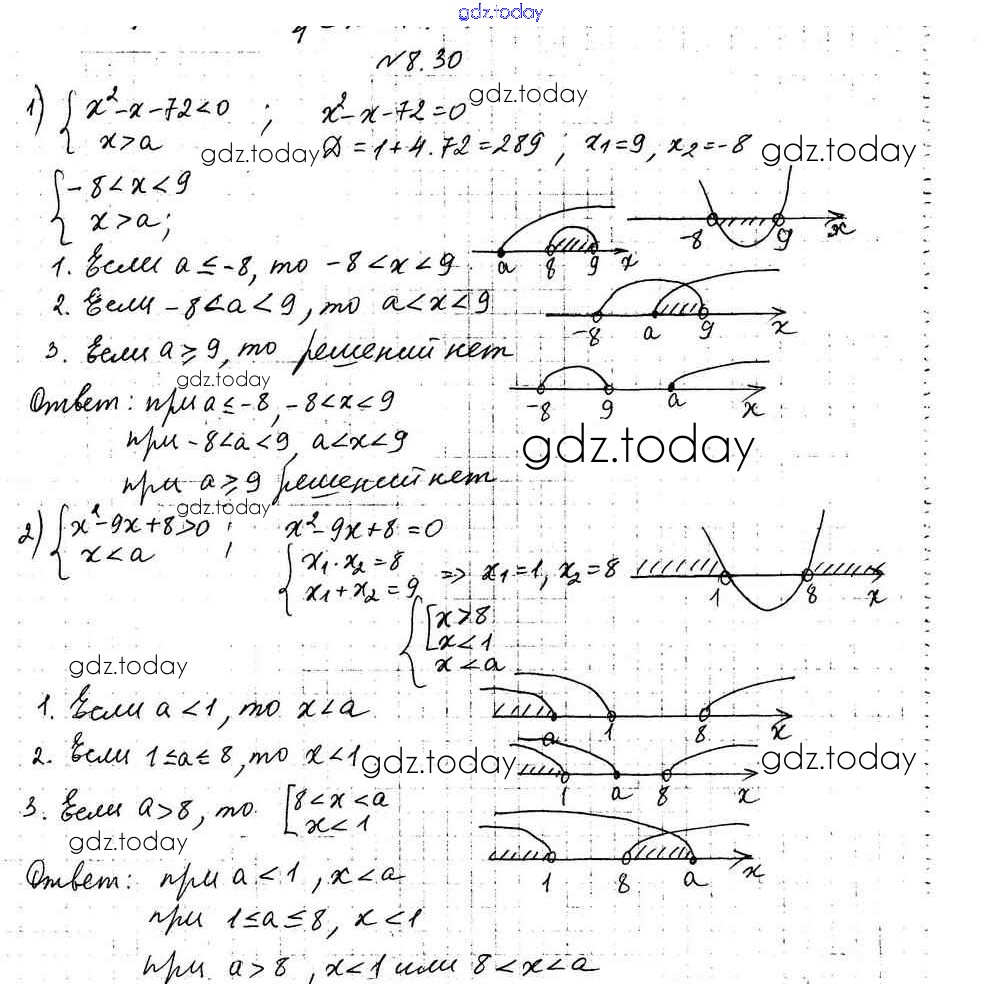 gdz.today
№8.30
1) { x²-x-72<0 ; x²-x-72=0 gdz.today
x>a gdz.today D=1+4.72=289 ; x1=9, x2=-8 gdz.today
{ -8<x<9
x>a;
-8 9 x
1. Если a≤-8, то -8<x<9 a 8 9 x
2. Если -8<a<9, то a<x<9 -8 a 9 x
3. Если a≥9, то решений нет
gdz.today
Ответ: при a≤-8, -8<x<9 -8 9 a x
при -8<a<9, a<x<9 gdz.today
при a≥9 решений нет
gdz.today
2) { x²-9x+8>0 ; x²-9x+8=0
x<a { x1·x2=8
x1+x2=9 => x1=1, x2=8 1 8 x
{ [ x>8
x<1
x<a
gdz.today
1. Если a<1, то x<a a 1 8 x
2. Если 1≤a≤8, то x<1 gdz.today gdz.today
1 a 8 x
3. Если a>8, то [ 8<x<a
x<1
gdz.today
Ответ: при a<1, x<a 1 8 a x
при 1≤a≤8, x<1
при a>8, x<1 или 8<x<a